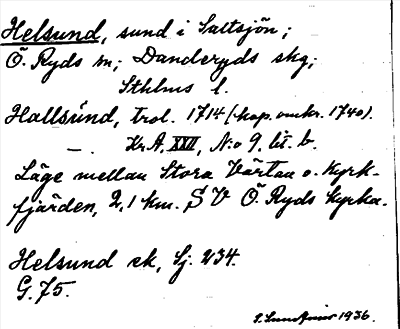 Helsund, sund i Saltsjön;
Ö. Ryds sn; Danderyds skg;
Sthlms l.
Hallsúnd, trol. 1714 (kop. omkr. 1740).
— . Kr. A. XXII, N:o 9, lit. b.
Läge mellan Stora Värtan o. Kyrk-
fjärden, 2,1 km. SV Ö. Ryds kyrka.
Helsund ek, Sj. 234.
G. 75.
1936.